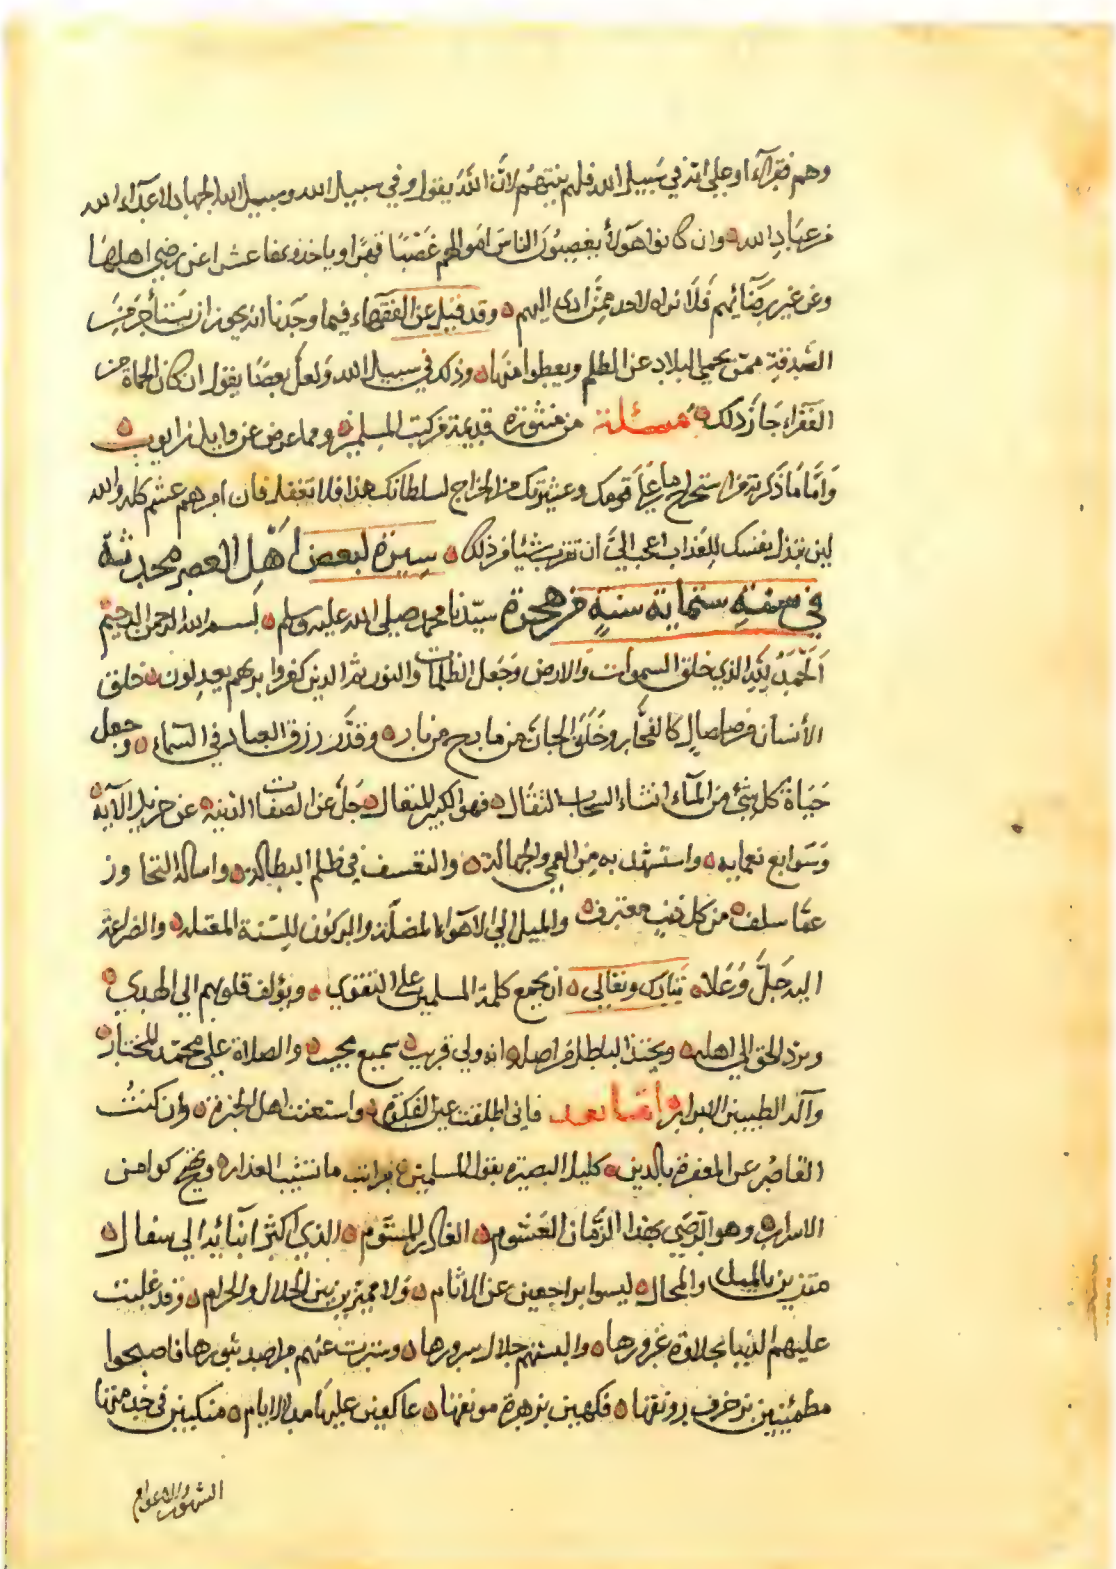 وهم فقرآء او جلي انه في سبيل الله فلهم بنيتهم لان الله يقول وفي سبيل الله وسبيل الله الجهاد لاعدآء الله
من عباد الله وان كانوا هولاء يغصبون الناس اموالهم غَصْبًا قهرًا وياخذو عشرا عن رضى اهلها
وعن غير رضائهم فلا نراه لاحد ممن ادى اليهم وقد قيل عن الفقهاء فيما وجدنا انه يجوز ان يستأجر من
الصدقة ممن يحمي البلاد عن الظلم ويعطوا منها وذلك في سبيل الله ولعل بعضًا يقول ان كان الحماة من
الفقراء جاز ذلك مسئلة من منثورة قديمة من كتب المسلمين ومما عرض عن وايل بن ايوب
وَامَّا مَا ذكرته من استخراج ما على قومك وعشيرتك من الخراج لسلطانك هذا فلا تفعل فان امرهم عشم كله والله
لئن تبذل نفسك للعذاب اعجب اليَّ ان تقرب شيئا من ذلك سيرة لبعض اهل العصر محدثة
في ستماية سنةٍ من هجرة سيّدنا محمد صلى الله عليه وسلم بسم الله الرحمن الرحيم
اَلْحَمْدُ لِلّهِ الذي خلق السموات والارض وجعل الظلمات والنور ثم الذين كفروا بربهم يعدلون خلق
الأنسان من صلصالٍ كالفخّار وخَلَقَ الجانَ من مارج من نار وقدَّر رزق العباد في السماء وجعل
حَيَاة كل شئ من المآء انشاء السحاب الثقال فهو الكبير المتعال جَلّ عن الصفات الدنية عن جزيل الآيه
وَسَوابغ نعمايه واستهدِ به من العمى والجهالة والتعسف في ظلم البطالة واساله التجاوز
عمّا سلف من كل ذنب معترف والميل الي الاهوآء المضلّة والركون للسنة المعتله والضراعة
اليه جَلَّ وَعَلا تبارك وتعالى ان يجمع كلمة المسلمين على التقوي ويؤلف قلوبهم الي الهدي
ويرد الحق الي اهله ويجتذ الباطل من اصله انه ولي قريب سميع مجيب والصلاة علي محمّد المختار
وآله الطيبين الابرار امّا بعد فاني اطلقت عين الفكرة واستعنت اهل الخبرة وان كنتُ
القاصر عن المعرفة بالدين كليل البصيرة بقول المسلمين فرايت ما تشيب العذار كوامن
الاسرار وهو الرضي بهذا الزمان الغشوم الغادر المشوم الذي اكثر ابنائه الي سفال
متدينين بالميل والمحال ليسوا براجعين عن الاثام ولا مميزين بين الحلال والحرام وقد غلبت
عليهم الدنيا بحلاوة غرورها والبستهم جلال سرورها وسترت عنهم مراصد ثبورها فاصبحوا
مطمئنين بزخرف رونقها فكهين بزهرة مونقها عاكفين عليها مدا الايام منكبين في خدمتها
الشهور والاعوام